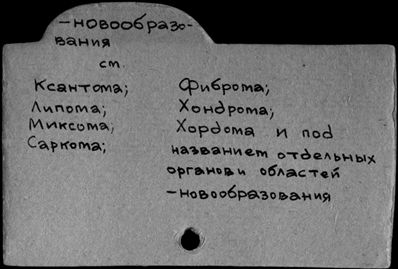 —новообразо-
вания
см.
Ксантома;
Липома;
Миксома;
Саркома;
Фиброма;
Хондрома;
Хордома и под
названием отдельных
органов и областей
—новообразования